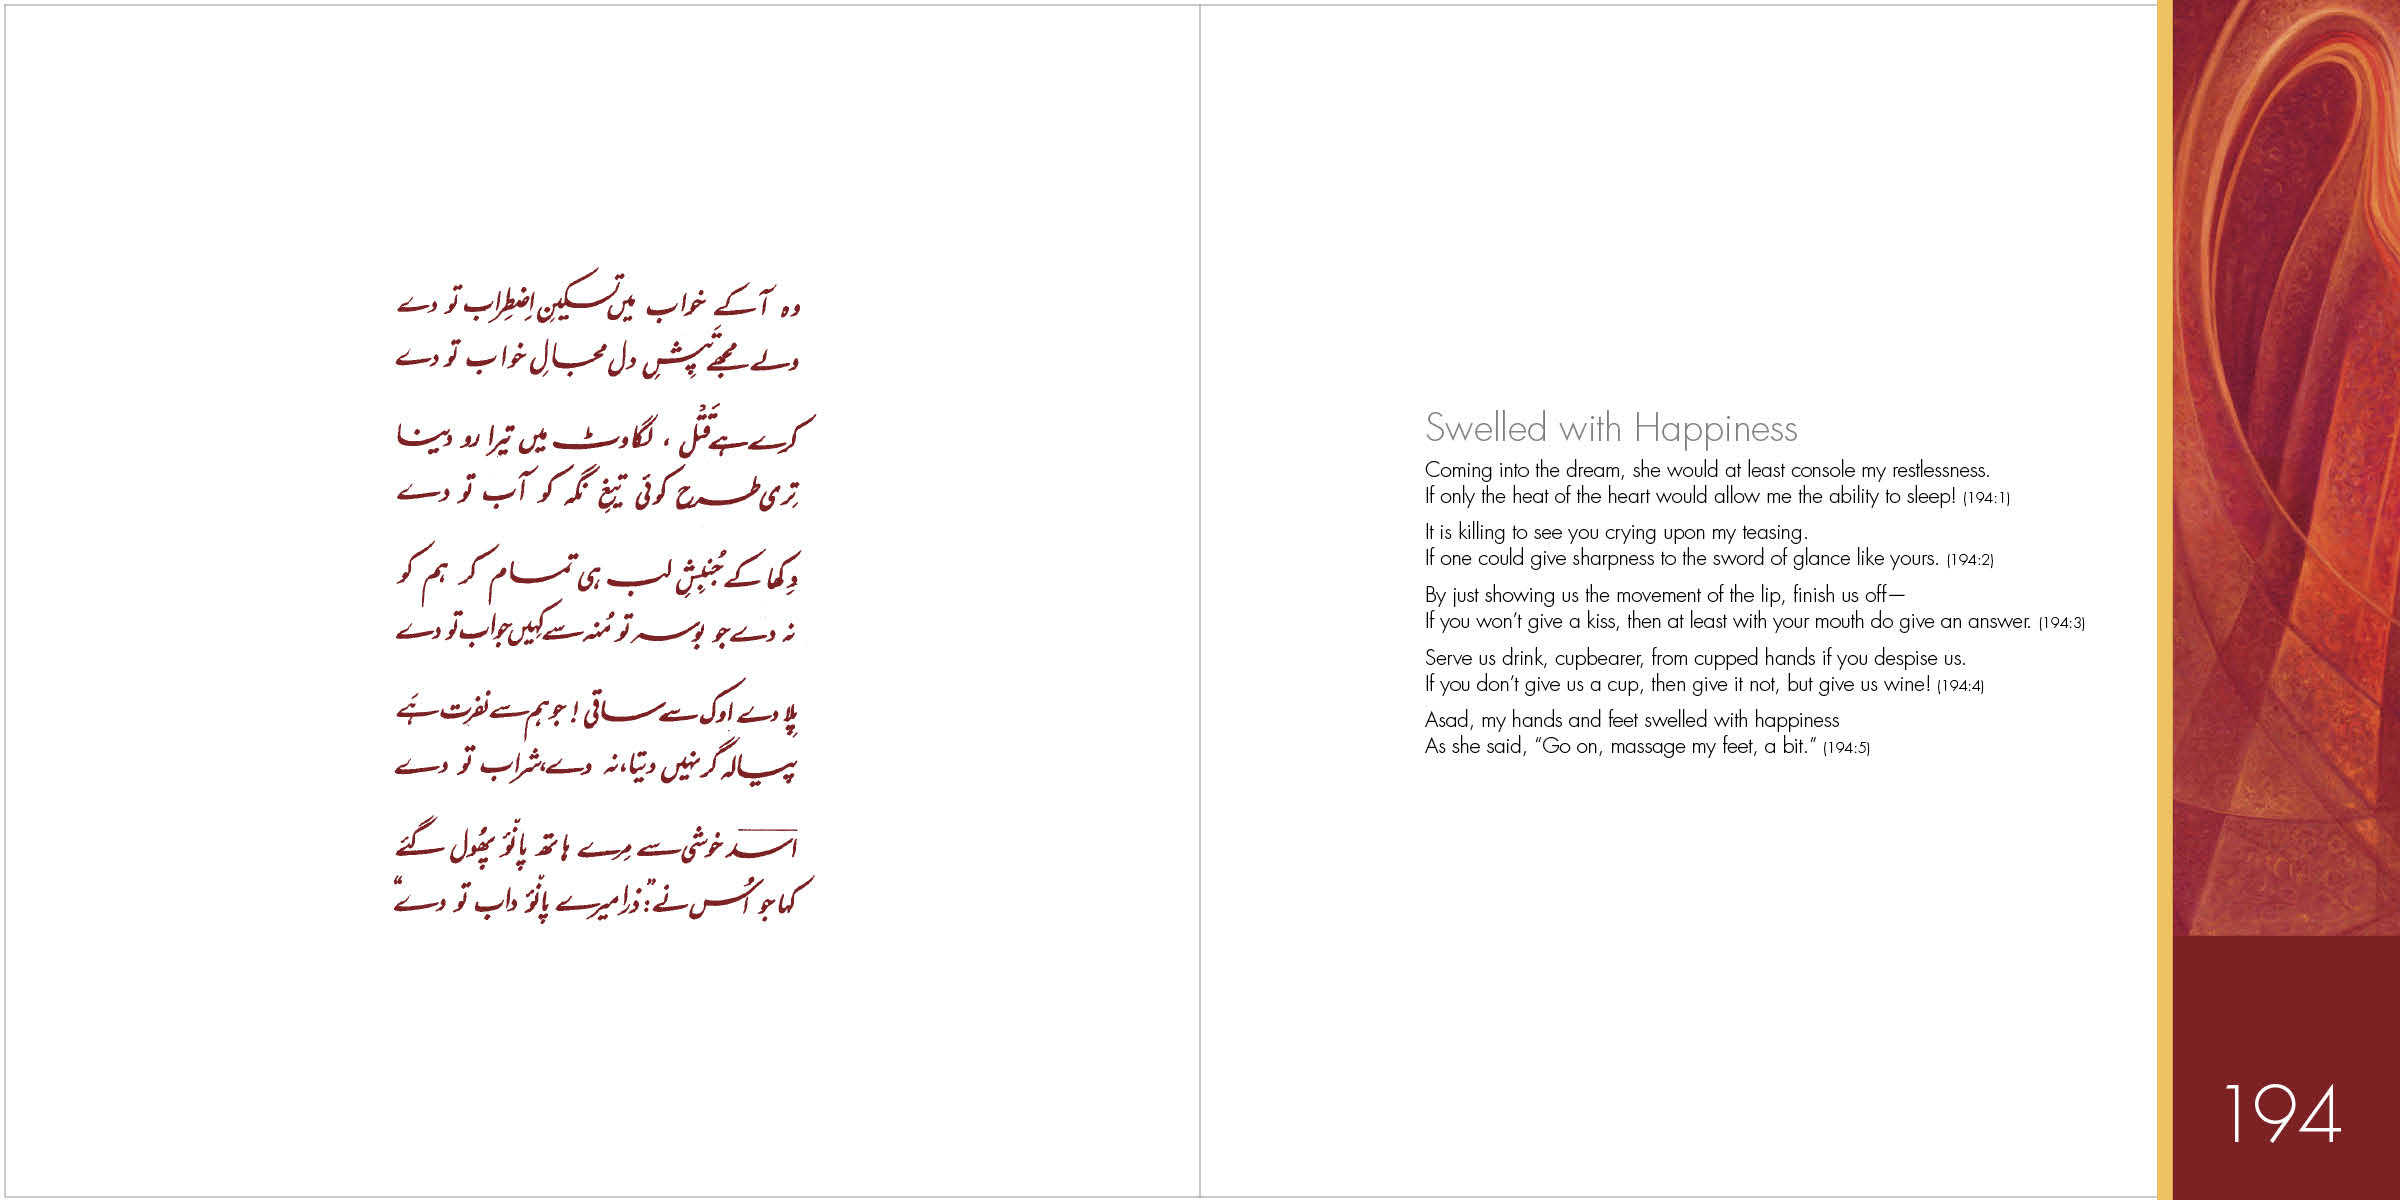 وہ آکے خواب میں تسکینِ اِضطِراب تو دے
ولے مجھے تَپِشِ دل مجالِ خواب تو دے
کرے ہے قَتْل ، لگاوٹ میں تیرا رو دینا
تِری طرح کوئی تیغِ نگہ کو آب تو دے
دِکھا کے جُنبِشِ لب ہی تمام کر ہم کو
نہ دے جو بوسہ تو مُنہ سے کہِیں جواب تو دے
پِلا دے اوک سے ساقی ! جو ہم سے نفرت ہَے
پیالہ گر نہیں دیتا، نہ دے، شراب تو دے
اسد خوشی سے مِرے ہاتھ پانْوْ پھُول گئے
کہا جو اُس نے :”ذرا میرے پانْوْ داب تو دے“
Swelled with Happiness
Coming into the dream, she would at least console my restlessness.
If only the heat of the heart would allow me the ability to sleep! (194:1)
It is killing to see you crying upon my teasing.
If one could give sharpness to the sword of glance like yours. (194:2)
By just showing us the movement of the lip, finish us off—
If you won’t give a kiss, then at least with your mouth do give an answer. (194:3)
Serve us drink, cupbearer, from cupped hands if you despise us.
If you don’t give us a cup, then give it not, but give us wine! (194:4)
Asad, my hands and feet swelled with happiness
As she said, “Go on, massage my feet, a bit.” (194:5)
194